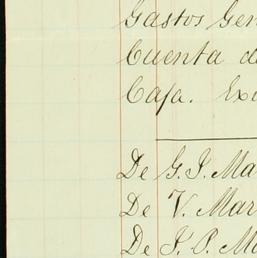 Gastos Gen
Cuenta de
Caja. Exi
De G. I. Ma
De V. Mar
De I. P. Ma